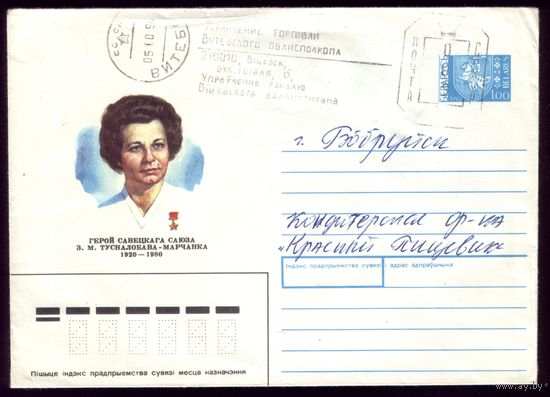 ВИТЕБ
05 10 9
Управление торговли
Витебского облисполкома
210010, Віцебск,
вул. Гогаля, 6,
ПОЧТА
BELARUS
1992
1.00
г. Бобруйск
Кондитерская ф-ка
"Красный Пищевик"
ГЕРОЙ САВЕЦКАГА САЮЗА
З. М. ТУСНАЛОБАВА-МАРЧАНКА
1920—1980
Індэкс прадпрыемства сувязі і адрас адпраўшчыка
Пішыце індэкс прадпрыемства сувязі месца назначэння
www.ay.by